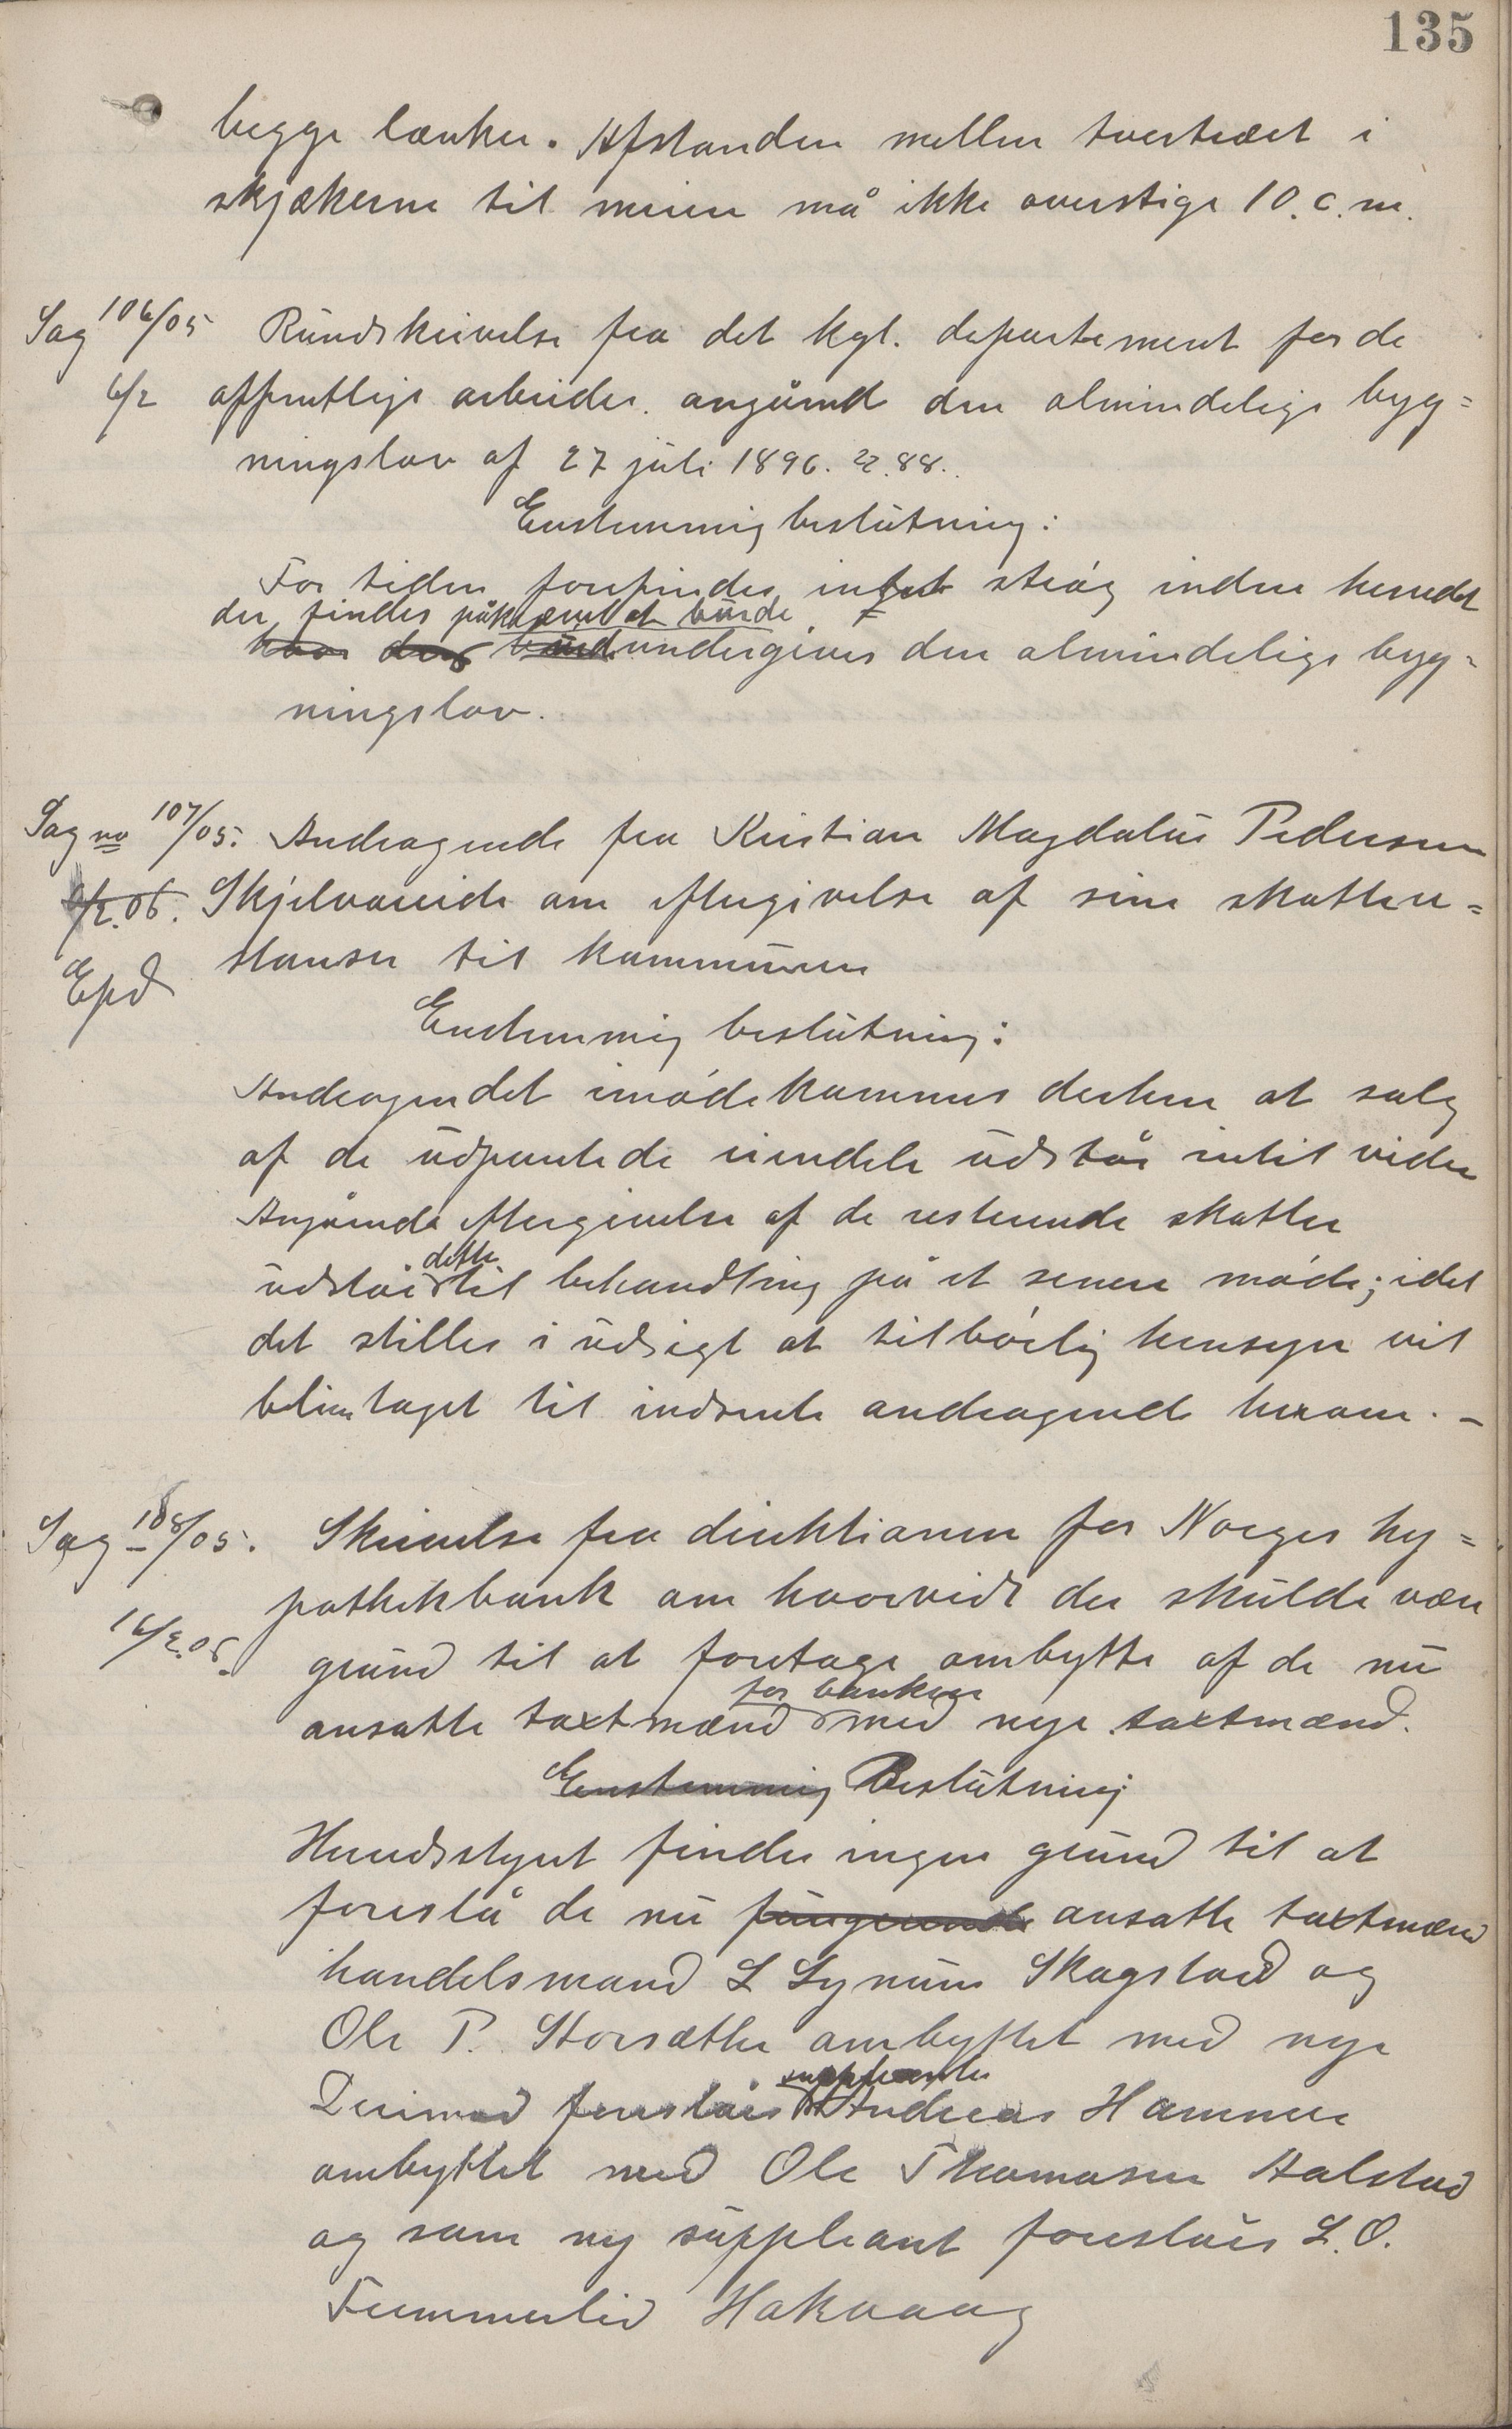 135
begge lænker. Afstanden mellem tvertræet i
skjækerne til meien må ikke overstige 10. c.m.
Sag 106/05 Rundskrivelse fra det kgl. departement for de
6/2 offentlige arbeider angående den almindelige byg=
ningslov af 27 juli 1896. § 88.
Enstemmig beslutning:
For tiden forefindes intet strøg inden herredet
der findes påkrævet at burde
hvor der burde undergives den almindelige byg=
ningslov.
Sag no 107/05. Andragende fra Kristian Magdalus Pedersen
6/2.06. Skjelvareide om eftergivelse af sine skattere=
Epd stanser til kommunen
Enstemmig beslutning:
Andragendet imødekommes derhen at salg
af de udpantede eiendele udstår intil videre
Angående eftergivelse af de resterende skatter
udstår dette til behandling på et senere møde; idet
det stilles i udsigt at tilbørlig hensyn vil
blive taget til indsendte andragende herom. -
Sag - 108/05. Skrivelse fra direktionen for Norges hy=
pothekbank om hvorvidt der skulde være
16/2.06. grund til at foretage ombytte af de nu
ansatte taxtmænd for banken med nye taxtmænd.
Enstemmig Beslutning
Herredsstyret finder ingen grund til at
foreslå de nu fungerende ansatte taxtmænd
handelsmand L Lynum Skagstad og
Ole P. Storsæther ombyttet med nye
Derimod foreslåes suppleanten Andreas Hammer
ombyttet med Ole Thomasen Halstad
og som ny suppleant foreslåes L. O.
Fummerlid Hakvaag